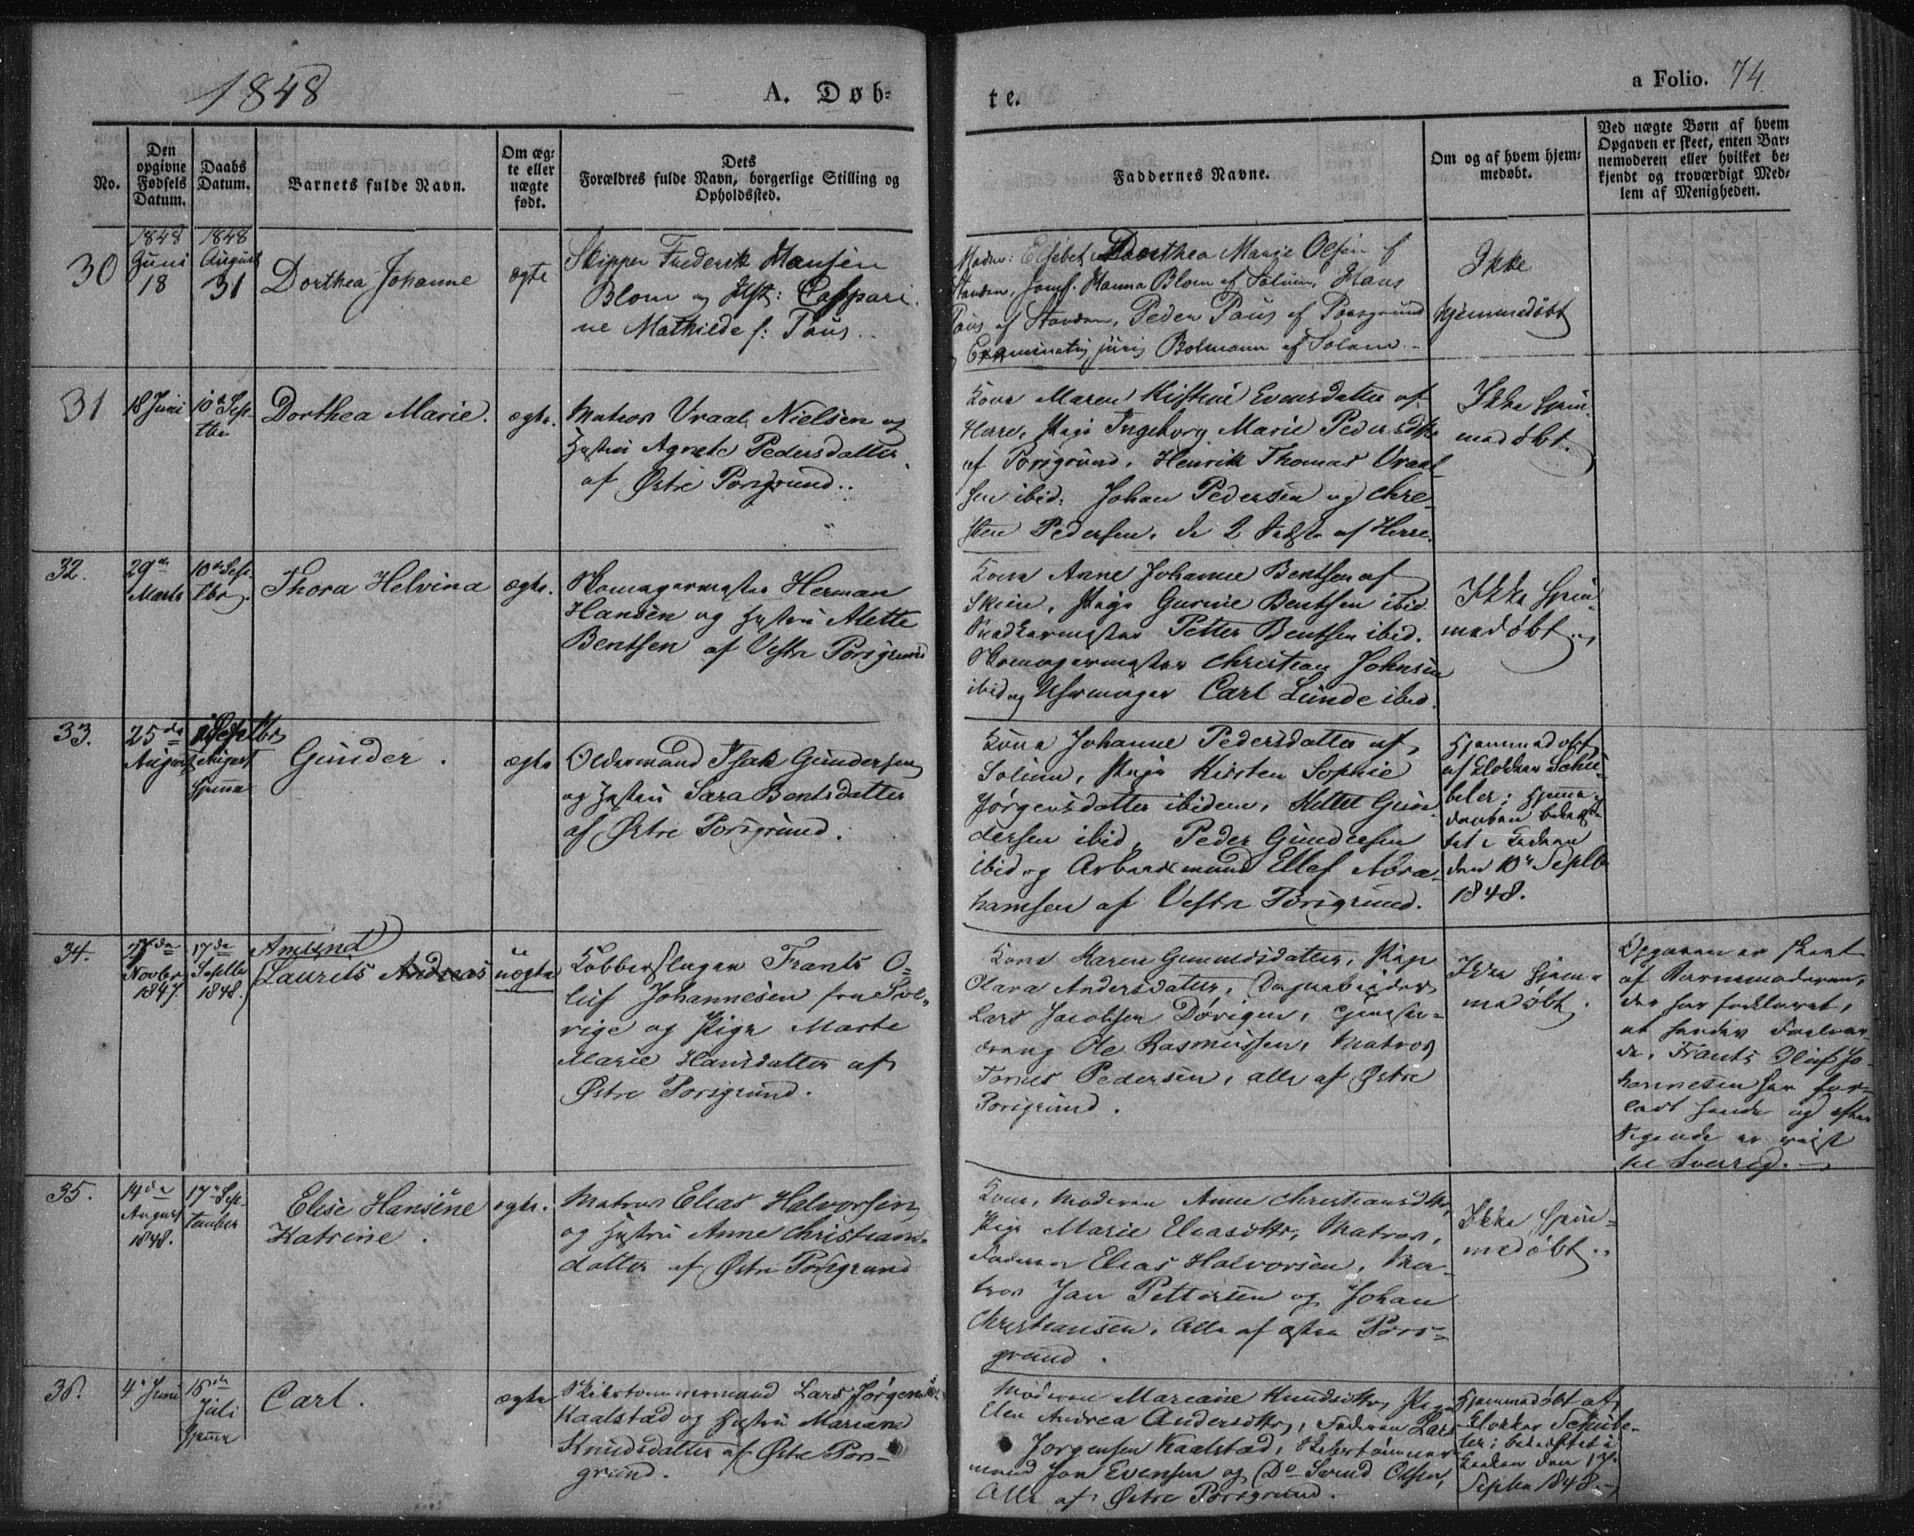 1848
A. Døb-
te.
a Folio. 74
No.
Den opgivne Fødsels Datum.
Daabs Datum.
Barnets fulde Navn.
Om ægte eller uægte født.
Dets Forældres fulde Navn, borgerlige Stilling og Opholdssted.
Faddernes Navne.
Om og af hvem hjemmedøbt.
Ved uægte Børn af hvem Opgaven er skeet, enten Barnemoderen eller hvilket bekjendt og troværdigt Medlem af Menigheden.
30
1848 Juni 18
1848 August 31
Dorthea Johanne
ægte
Skipper Frederik Hansen
Blom og Hst: Caspari
ne Mathilde f: Paus
Madm: Elsebet Dorthea Marie Olsen af
Standen, Jomf. Hanna Blom af Solum, Hans
Paus af Standen, Peder Paus af Porsgrund
Examinatus juris Bolmann af Solum
Ikke
hjemmedøbt
31
18 Juni
10de Sept
Dorthea Marie.
ægte.
Matros Vraal Nielsen og
Hustru Agnete Pedersdatter
af Østre Porsgrund.
Kone Maren Kirstine Evensdatter af
Herre, Pige Ingeborg Marie Pedersdtr
af Porsgrund, Henrik Thomas Vraal
sen ibid: Johan Pedersen og Chre-
sten Pedersen, de 2 sidste af Herre.
Ikke hjem
medøbt.
32.
29de Marts
10de Septbr
Thora Helvina
ægte.
Skomagermester Herman
Hansen og Hustru Alette
Bentsen af Vestre Porsgrund
Kone Anne Johanne Bentsen af
Skien, Pige Gurine Bentsen ibid
Snedkermester Petter Bentsen ibid.
Skomagermester Christian Johnsen
ibid og Uhrmager Carl Lunde ibid.
Ikke hjem
medøbt.
33.
25de August
August hjemme
Gunder.
ægte
Oldermand Isak Gundersen
og Hustru Sara Bentsdatter
af Østre Porsgrund.
Kone Johanne Pedersdatter af
Solum, Pige Kirsten Sophie
Jørgensdatter ibidem, Kittel Gun
dersen ibid, Peder Gundersen
ibid og Arbeidsmand Ellef Abra-
hamsen af Vestre Porsgrund.
Hjemmedøbt
af Klokker Schu-
beler; hjemme
daaben bekræf-
tet i Kirken
den 10de Septb
1848.
34.
Novbr 1847.
17de Septbr 1848.
Amund
Laurits Andreas
uægte
Kobberslager Frants O-
luf Johannesen fra Sve-
rige og Pige Marte
Marie Hansdatter af
Østre Porsgrund.
Kone Karen Gunnersdatter, Pige
Olava Andersdatter, Dagarbeider
Lars Jacobsen Dørigen,
dreng Ole Rasmussen, Matros
Tønnes Pedersen, alle af Østre
Porsgrund.
Ikke hjem-
medøbt.
Opgaven er skeet
af Barnemoderen,
der har forklaret,
at hendes Forlov-
de, Frants Oluf Jo-
hannesen har for-
ladt hende og efter
Sigende er reist
til Sverig.
35.
14de August 1848.
17de September
Elise Hansine
Katrine.
ægte.
Matros Elias Halvorsen
og Hustru Anne Christians-
datter af Østre Porsgrund
Kone, Moderen Anne Christiansdtr,
Pige Marie Eliasdtr, Matros,
Faderen Elias Halvorsen, Ma-
tros Jan Pettersen og Johan
Christiansen, Alle af østre Pors-
grund.
Ikke hjem-
medøbt.
36.
4de Juni
16de Juli hjemme
Carl.
ægte
Skibstømmermand Lars Jørgensen
Kaalstad og Hustru Mariane
Knudsdatter af Østre Pors-
grund.
Moderen Mariane Knudsdtr, Pige
Ellen Andrea Andersdtr, Faderen Lars
Jørgensen Kaalstad, Skibstømmer-
mand Jon Evensen og Do Svend Olsen,
Alle af Østre Porsgrund.
Hjemmedøbt af
Klokker Schube-
ler; bekræftet i
Kirken den 17.
Septbr 1848.